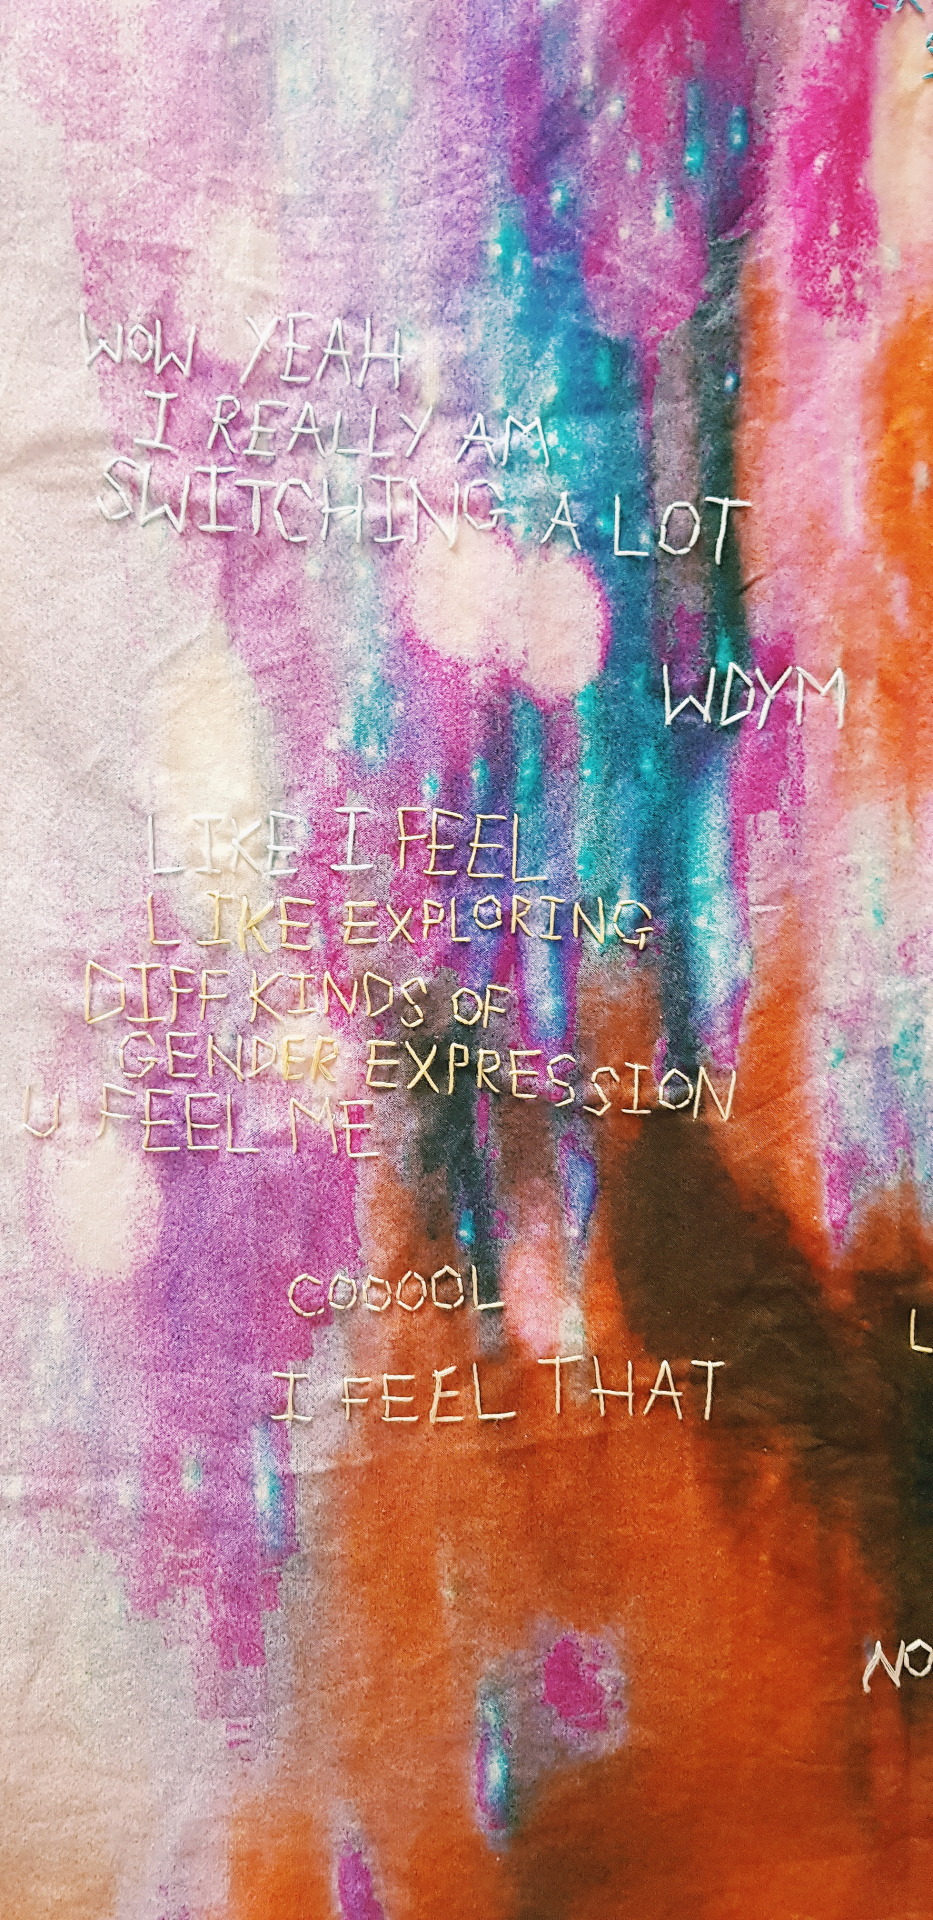 WOW YEAH
I REALLY AM
SWITCHING A LOT
WDYM
LIKE I FEEL
LIKE EXPLORING
DIFF KINDS OF
GENDER EXPRESSION
U FEEL ME
COOOOL
I FEEL THAT
NO